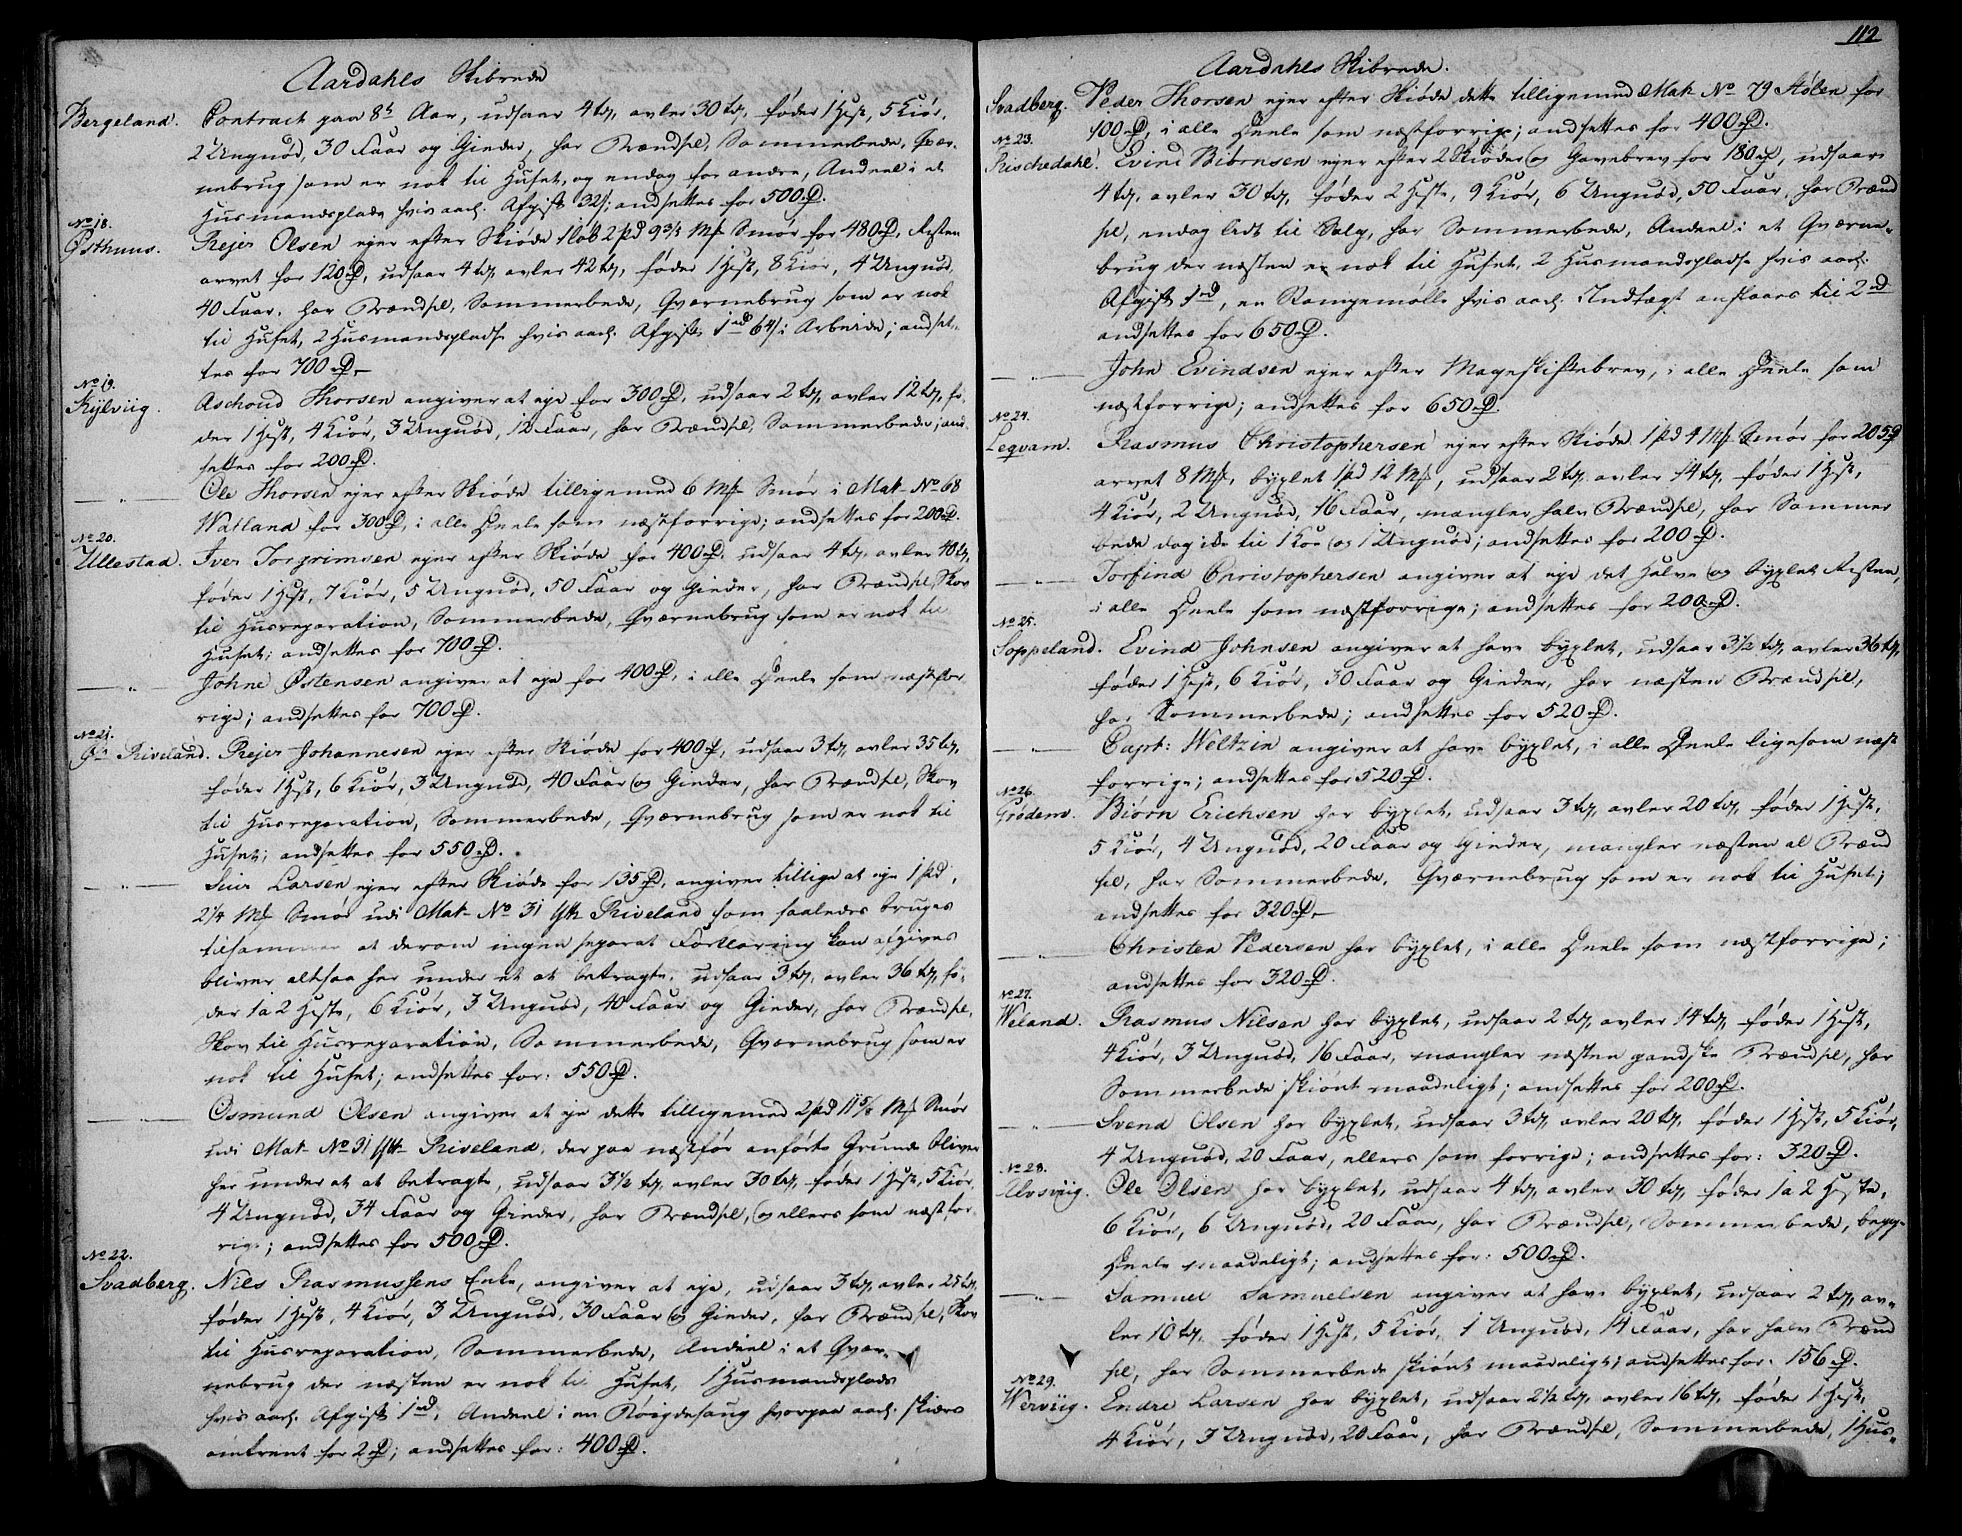 Aardahls Skibrede
Bergeland. Contract paa 8t Aar, udsaar 4 td, avler 30 td, føder 1 Hest, 5 Kiør,
2 Ungnød, 30 Faar og Gieder, har Brændsel, Sommerbede, Qvær-
nebrug som er nok til Huset, og endog for andre, Andeel i et
Husmandsplads hvis aarl. Afgift 32 s; andsættes for 500 D.
No 18.
Østhuus. Rejer Olsen ejer efter Skiøde 1 løb 2 pd 9 3/4 Mk Smør for 480 D, Resten
arvet for 120 D, udsaar 4 td, avler 42 td, føder 1 Hest, 8 Kiør, 4 Ungnød,
40 Faar, har Brændsel, Sommerbede, Qværnebrug som er nok
til Huset, 2 Husmandspladse hvis aarl. Afgift 1 rd 64 s i Arbeide; andsæt-
tes for 700 D.
No 19.
Kylviig. Aschoud Thorsen angiver at eje for 300 D, udsaar 2 td, avler 12 td, fø-
der 1 Hest, 4 Kiør, 3 Ungnød, 12 Faar, har Brændsel, Sommerbede; and-
sættes for 200 D.
— " — Ole Thorsen ejer efter Skiøde tilligemed 6 Mk Smør i Mat- No 68
Watland for 300 D, i alle Deele som næstforrige; andsættes for 200 D.
No 20.
Ullestad. Iver Torgrimsen ejer efter Skiøde for 400 D, udsaar 4 td, avler 40 td,
føder 1 Hest, 7 Kiør, 5 Ungnød, 50 Faar og Gieder, har Brændsel, Skov
til Husreparation, Sommerbede, Qværnebrug som er nok til
Huset; andsættes for 700 D.
— " — Johne Østensen angiver at eje for 400 D, i alle Deele som næstfor-
rige; andsættes for 700 D.
No 21.
Riveland. Rejer Johannesen ejer efter Skiøde for 400 D, udsaar 3 td, avler 35 td,
føder 1 Hest, 6 Kiør, 3 Ungnød, 40 Faar og Gieder, har Brændsel, Skov
til Husreparation, Sommerbede, Qværnebrug som er nok til
Huset; andsættes for 550 D.
— " — Siur Larsen ejer efter Skiøde for 135 D, angiver tillige at eje 1 pd,
2 1/4 Mk Smør udi Mat- No 31 Riveland som saaledes bruges
tilsammen at derom ingen separat Forklaring kan afgives
bliver altsaa her under et at betragte, udsaar 3 td, avler 36 td, fø-
der 1 a 2 Heste, 6 Kiør, 3 Ungnød, 40 Faar og Gieder, har Brændsel,
Skov til Husreparation, Sommerbede, Qværnebrug som er
nok til Huset; andsættes for: 550 D.
— " — Osmund Olsen angiver at eje dette tilligemed 2 pd 11 5/8 Mk Smør
udi Mat- No 31 Riveland, der paa næstfør anførte Grunde bliver
her under at at betragte, udsaar 3 1/2 td, avler 30 td, føder 1 Hest, 5 Kiør,
4 Ungnød, 34 Faar og Gieder, har Brændsel, og ellers som næstfor-
rige; andsættes for 500 D.
No 22.
Svadberg. Niels Rasmussens Enke, angiver at eje, udsaar 3 td, avler 25 td,
føder 1 Hest, 4 Kiør, 3 Ungnød, 30 Faar og Gieder, har Brændsel, Skov
til Husreparation, Sommerbede, Andeel i et Qvær-
nebrug der næsten er nok til Huset, 1 Husmandsplads
hvis aarl. Afgift 1 rd, Andeel i en Bøigdesaug hvorpaa aarl. skiæres
omtrent for 2 D; andsættes for: 400 D.
112
Aardahls Skibrede.
Svadberg. Peder Thorsen ejer efter Skiøde dette tilligemed Mat- No 79 Hølen for
100 D, i alle Deele som næstforrige; andsættes for 400 D.
No 23.
Rischedahl. Evind Biørnsen ejer efter 2 Skiøder og Gavebrev for 180 D, udsaar
4 td, avler 30 td, føder 2 Heste, 9 Kiør, 6 Ungnød, 50 Faar, har Brænd-
sel, endog lidt til Salg, har Sommerbede, Andeel i et Qværne-
brug der næsten er nok til Huset, 2 Husmandspladse hvis aarl.
Afgift 1 rd, en Stampemølle hvis aarl. Indtægt anslaaes til 2 rd
andsættes for 650 D.
— " — John Evindsen ejer efter Mageskiftebrev, i alle Deele som
næstforrige; andsættes for 650 D.
No 24.
Leqvam. Rasmus Christophersen ejer efter Skiøde 1 pd 4 Mk Smør for 205 D
arvet 8 Mk, byxlet 1 pd 12 Mk, udsaar 2 td, avler 14 td, føder 1 Hest,
4 Kiør, 2 Ungnød, 16 Faar, mangler halv Brændsel, har Sommer
bede dog ikke til 1 Koe og 1 Ungnød; andsættes for 200 D.
— " — Torfind Christophersen angiver at eje det Halve og byxlet Resten,
i alle Deele som næstforrige; andsættes for 200 D.
No 25.
Soppeland. Evind Johnsen angiver at have byxlet, udsaar 3 1/2 td, avler 36 td,
føder 1 Hest, 6 Kiør, 30 Faar og Gieder, har næsten Brændsel,
har Sommerbede; andsættes for 520 D.
— " — Capt: Weltzin angiver at have byxlet, i alle Deele ligesom næst
forrige; andsættes for 520 D.
No 26.
Grødem. Biørn Erichsen har byxlet, udsaar 3 td, avler 20 td, føder 1 Hest,
5 Kiør, 4 Ungnød, 20 Faar og Gieder, mangler næsten al Brænd
sel, har Sommerbede, Qværnebrug som er nok til Huset;
andsættes for 320 D.
— " — Christen Pedersen har byxlet, i alle Deele som næstforrige;
andsættes for 320 D.
No 27.
Weland. Rasmus Nilsen har byxlet, udsaar 2 td, avler 14 td, føder 1 Hest,
4 Kiør, 3 Ungnød, 16 Faar, mangler næsten gandske Brændsel, har
Sommerbede skiønt maadeligt; andsættes for 200 D.
— " — Svend Olsen har byxlet, udsaar 3 td, avler 20 td, føder 1 Hest, 5 Kiør,
4 Ungnød, 20 Faar, ellers som forrige; andsættes for: 320 D.
No 28.
Alvsviig. Ole Olsen har byxlet, udsaar 4 td, avler 30 td, føder 1 a 2 Heste,
6 Kiør, 6 Ungnød, 20 Faar, har Brændsel, Sommerbede, begge
Deele maadeligt; andsættes for: 500 D.
— " — Samuel Samuelsen angiver at have byxlet, udsaar 2 td, av-
ler 10 td, føder 1 Hest, 5 Kiør, 1 Ungnød, 14 Faar, har halv Brænd
sel, har Sommerbede skiønt maadeligt; andsættes for: 156 D.
No 29.
Werviig. Endre Larsen har byxlet, udsaar 2 1/2 td, avler 16 td, føder 1 Hest,
4 Kiør, 3 Ungnød, 20 Faar, har Brændsel, Sommerbede, 1 Hus-